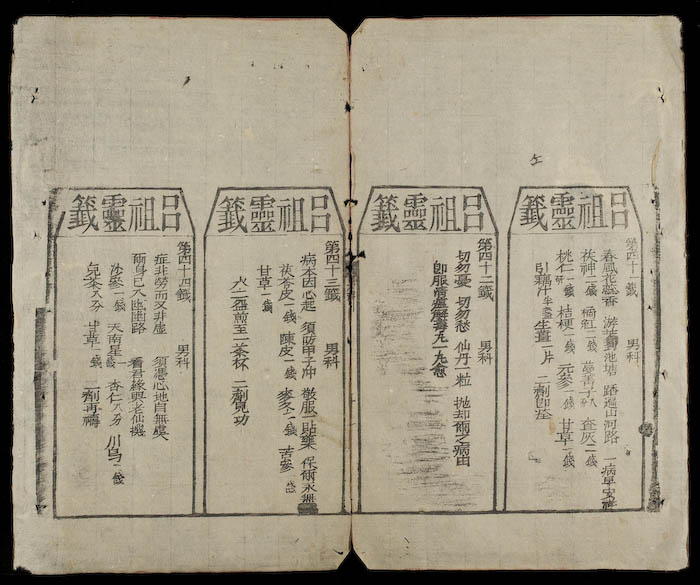 呂祖靈籤
第四十一籤 男科
春風花蕊香 游 池塘 踏遍山河路 一病早安
茯神一錢 橘紅二錢 蔓菁子 分 查灰二錢
桃仁一錢 桔梗二錢 元參一錢 甘草一錢
引藕汁半盅 生薑一片 二劑即痊
呂祖靈籤
第四十二籤 男科
切勿憂 切勿愁 仙丹一粒 拋却爾之病由
即服 解毒丸一丸愈
呂祖靈籤
第四十三籤 男科
病本因心起 須防甲子冲 敬服一貼藥 保爾永無
茯苓皮一錢 陳皮一錢 麥冬一錢 苦參 錢
甘草一錢
水二盅煎至一茶杯 二劑見功
呂祖靈籤
第四十四籤 男科
症非勞而又非虛 須憑心地自無虞
爾身已入幽途路 看君緣與老仙機
沙參一錢 天南星 錢 杏仁八分 川烏一錢
兒茶八分 甘草一錢 二劑再禱